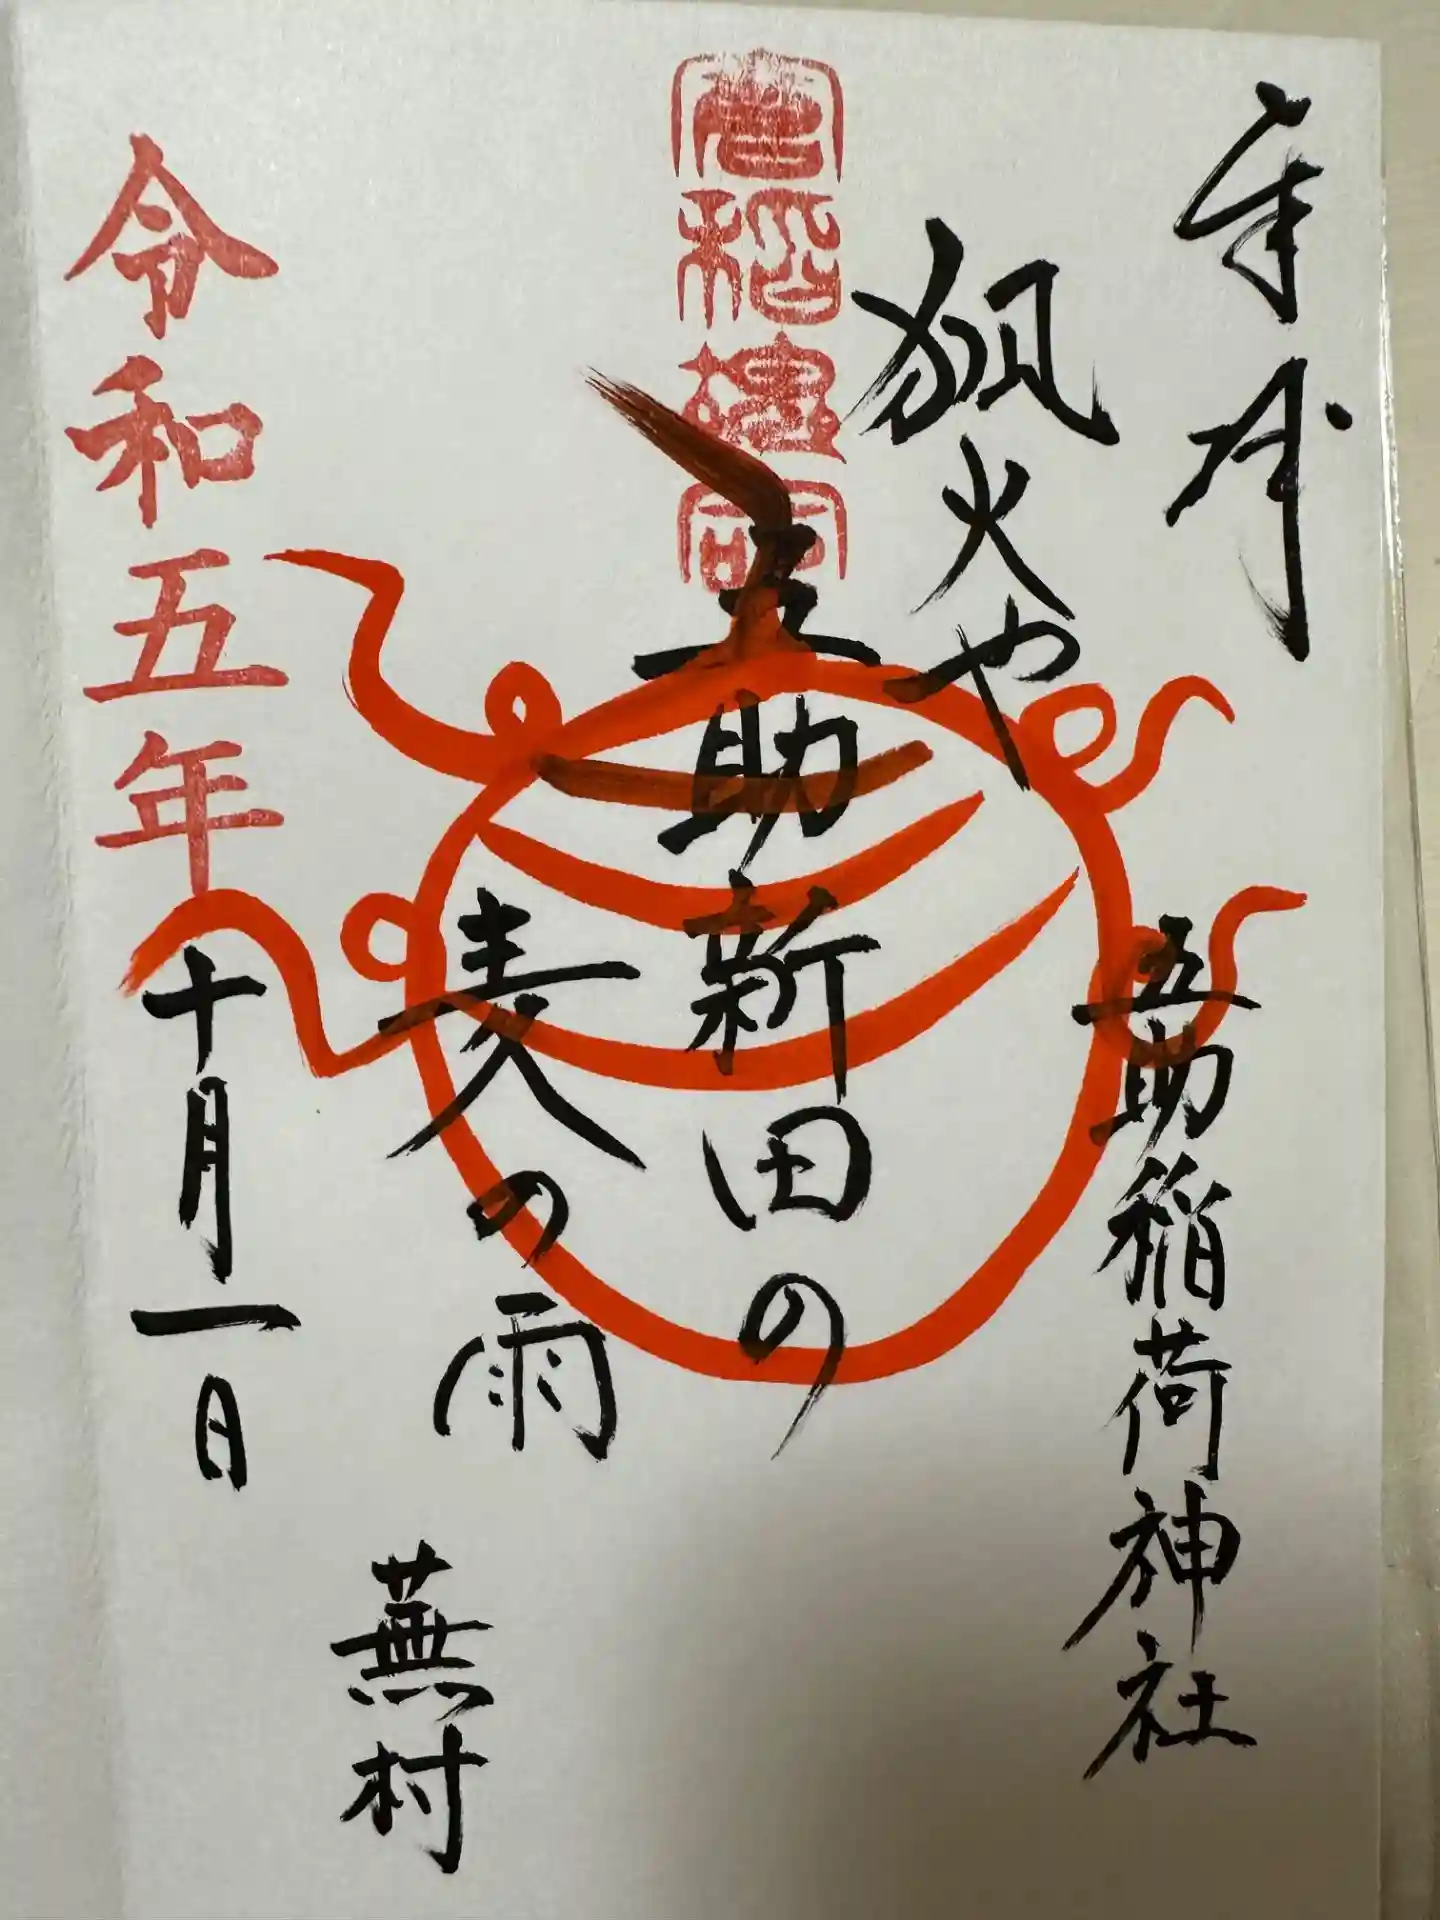 奉拝
五助稲荷神社
狐火や
五助新田の
麦の雨
蕪村
令和五年十月一日